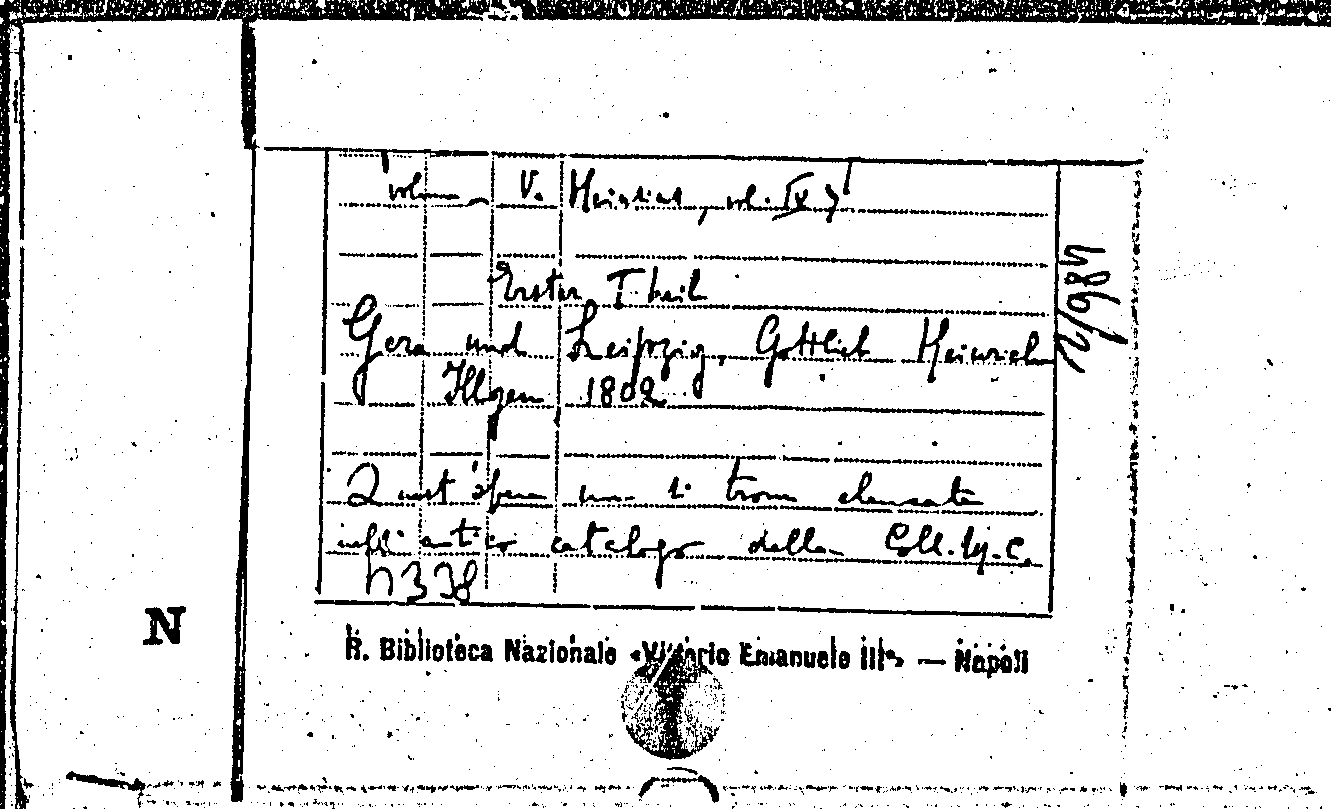 volume. V. Heinsius, vol. IV)
Erster Theil
Gera und Leipzig, Gottlieb Heinrich
Illgen 1802
12/984
Quest'opera non si trova elencata
nell'antico catalogo della Coll.
h 338
N
R. Biblioteca Nazionale «Vittorio Emanuele III» — Napoli